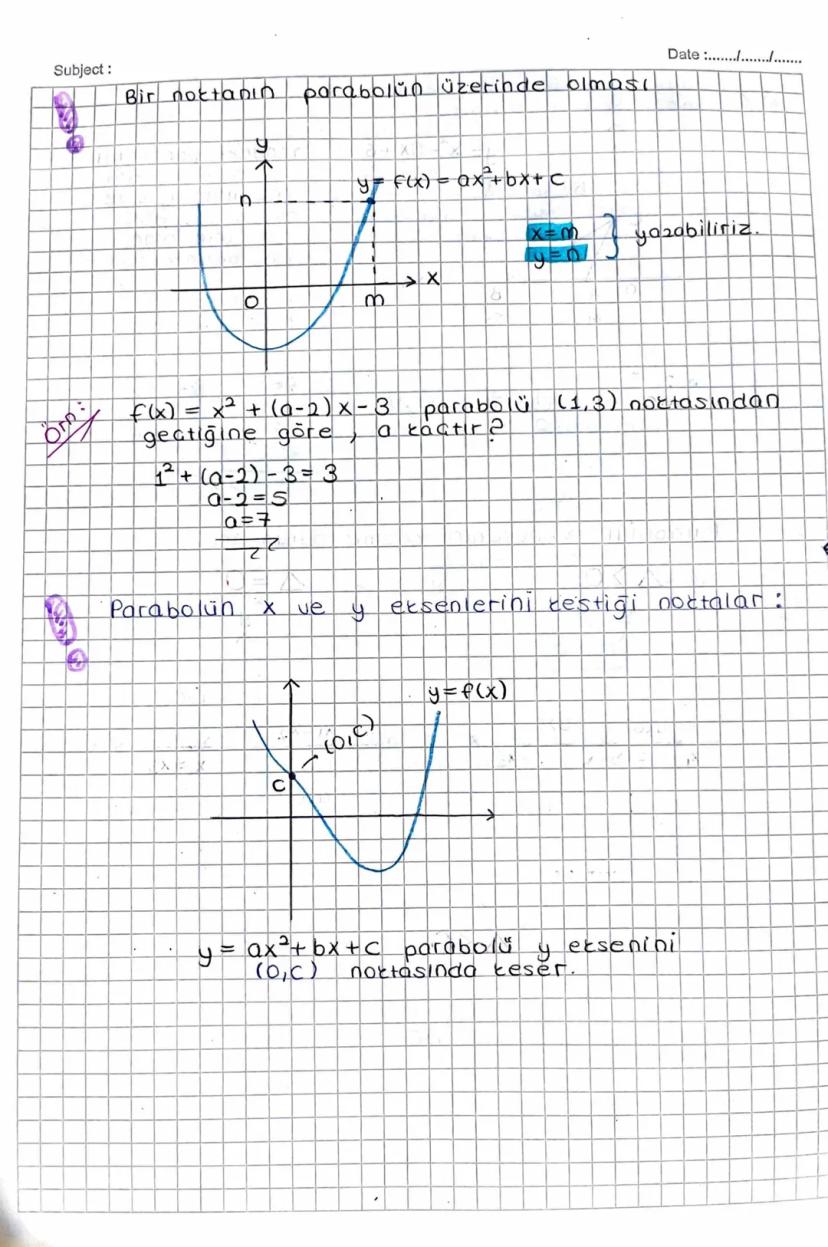 Date :......./......./.......
Subject :
Bir noktanın parabolün üzerinde olması
y
y = f(x) = ax²+bx+c
n
x=m
y=n
} yazabiliriz.
x
0
m
Örn:
f(x) = x² + (a-2)x-3 parabolü (1,3) noktasından
geçtiğine göre, a kaçtır?
1² + (a-2) - 3 = 3
a-2=5
a=7
Parabolün x ve y eksenlerini kestiği noktalar :
y=f(x)
(0,c)
c
y = ax²+bx+c parabolü y eksenini
(0,c) noktasında keser.